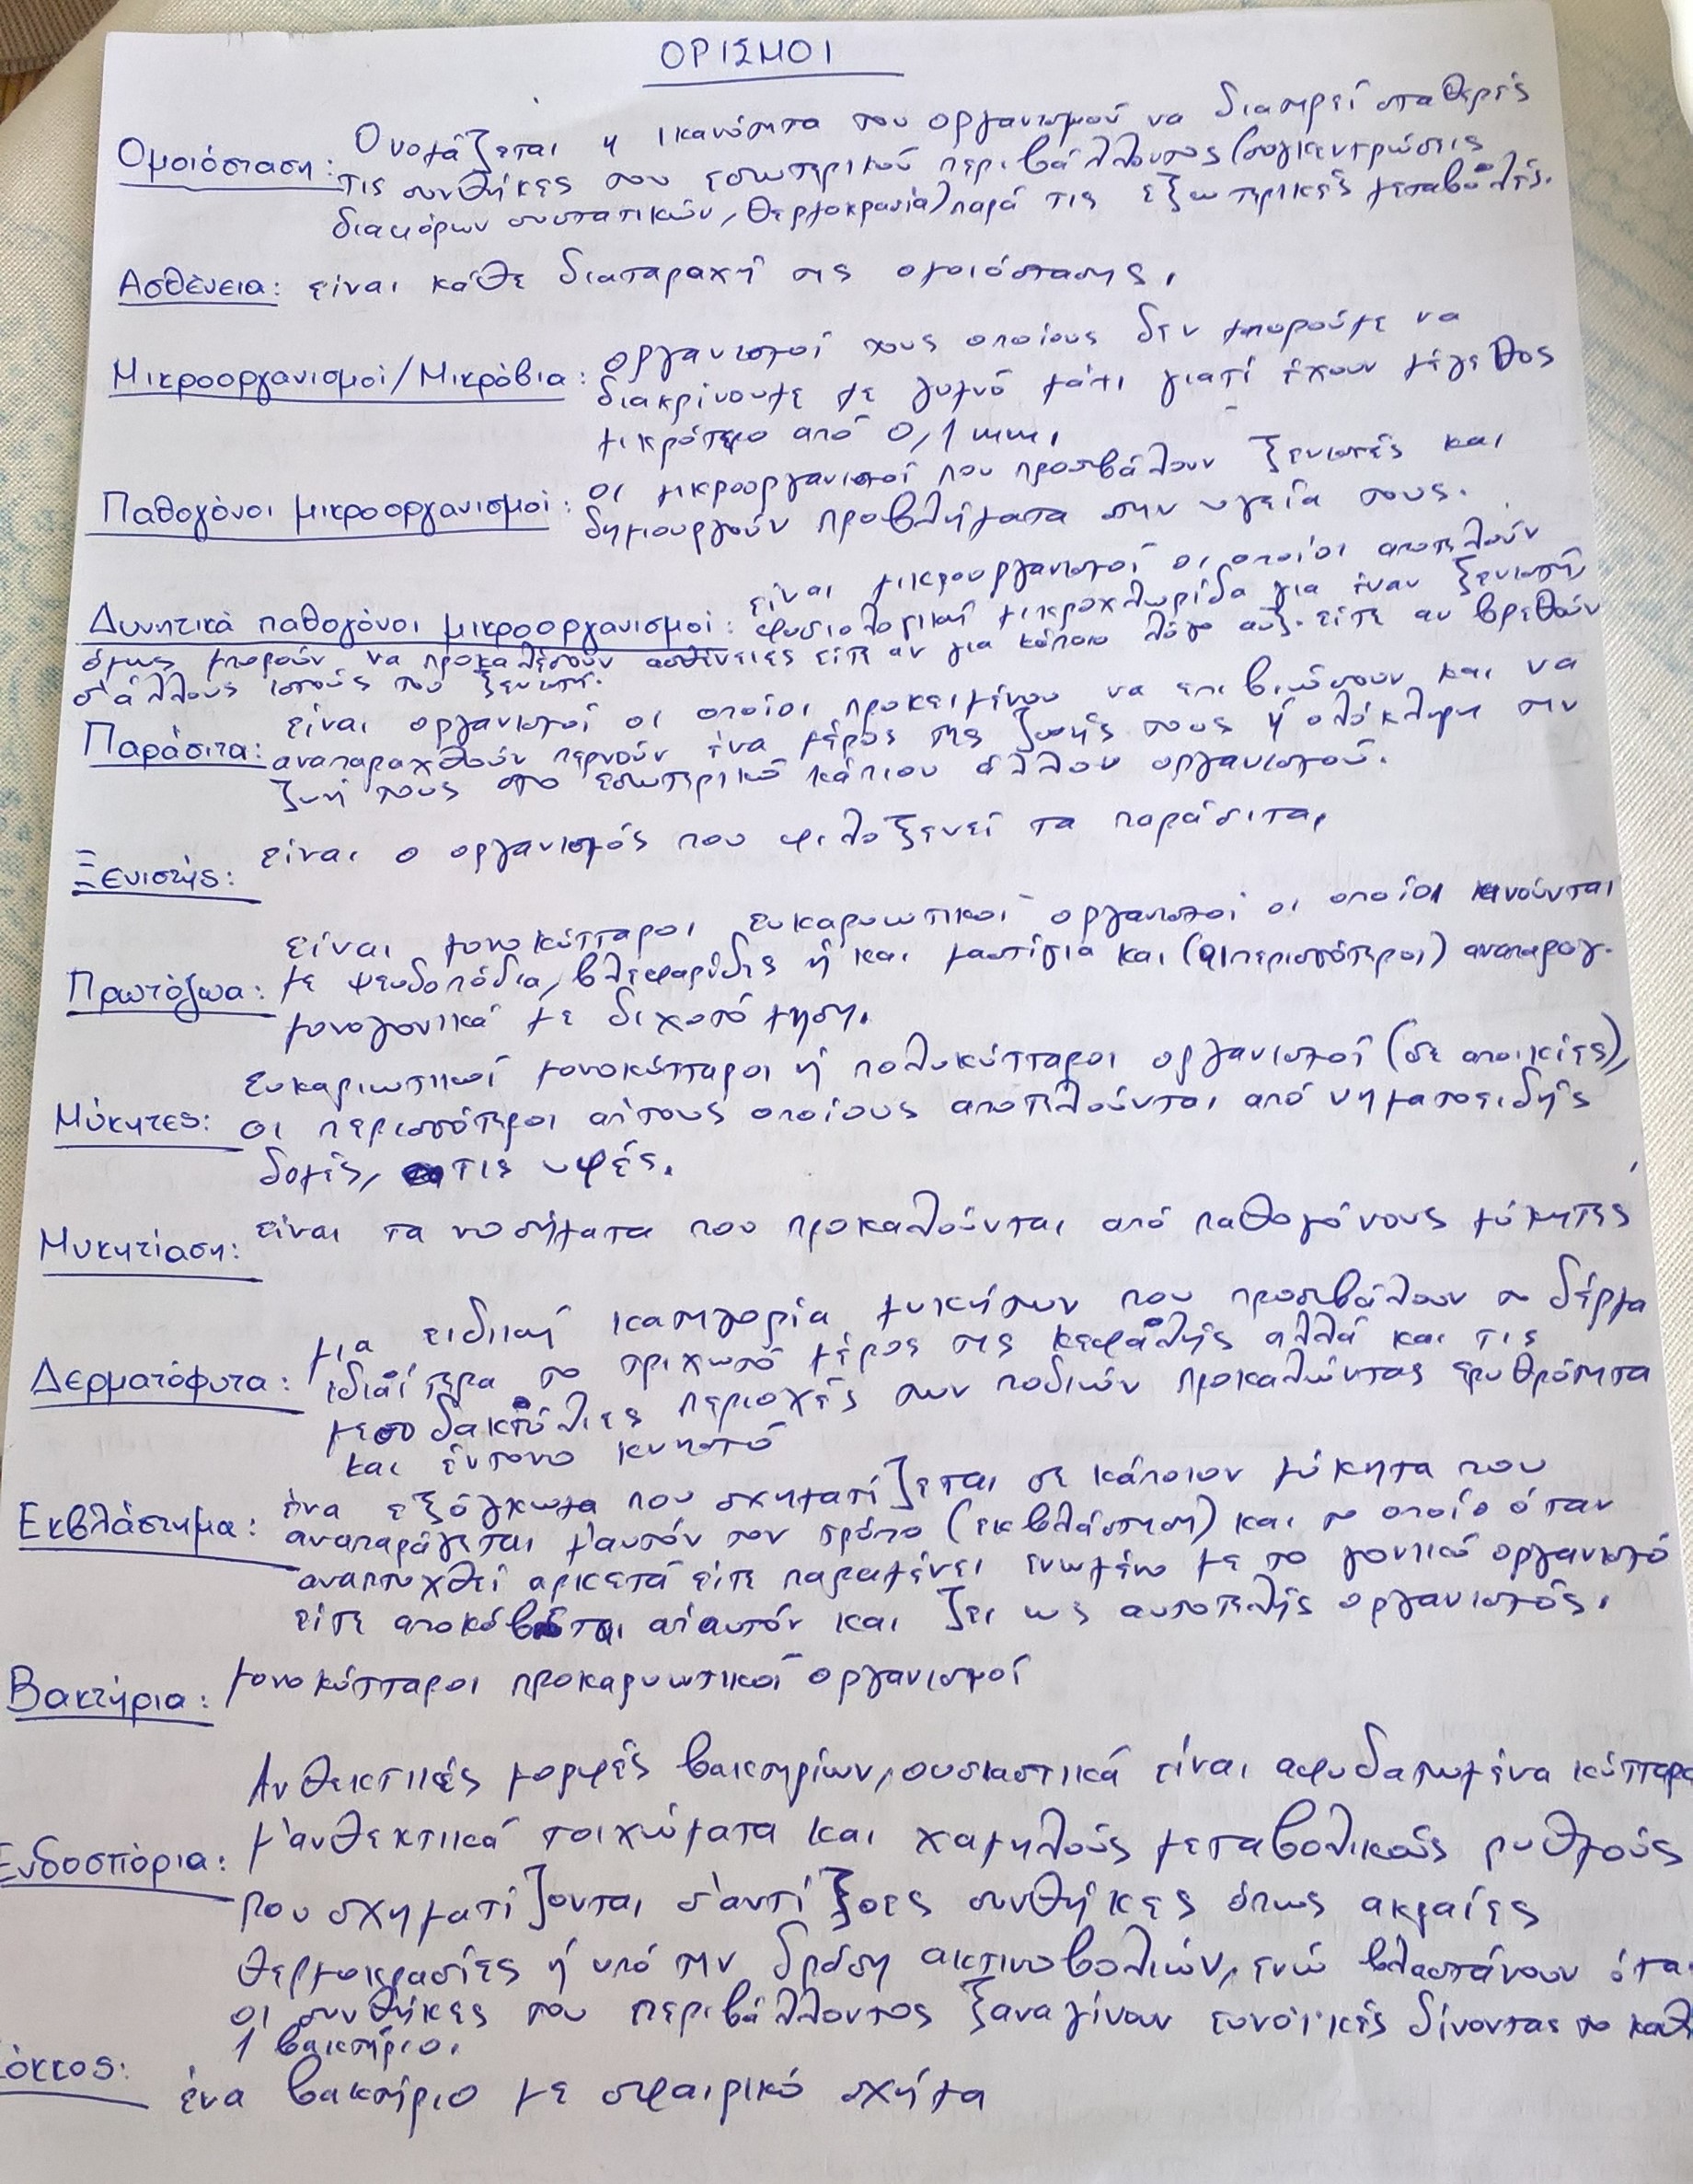 ΟΡΙΣΜΟΙ
Ομοιόσταση: Ονομάζεται η ικανότητα του οργανισμού να διατηρεί σταθερές
τις συνθήκες του εσωτερικού περιβάλλοντος (συγκεντρώσεις
διαφόρων συστατικών, θερμοκρασία) παρά τις εξωτερικές μεταβολές.
Ασθένεια: είναι κάθε διαταραχή της ομοιόστασης.
Μικροοργανισμοί/Μικρόβια: οργανισμοί τους οποίους δεν μπορούμε να
διακρίνουμε με γυμνό μάτι γιατί έχουν μέγεθος
μικρότερο από 0,1 mm.
Παθογόνοι μικροοργανισμοί: οι μικροοργανισμοί που προσβάλουν ξενιστές και
δημιουργούν προβλήματα στην υγεία τους.
Δυνητικά παθογόνοι μικροοργανισμοί: είναι μικροοργανισμοί οι οποίοι αποτελούν
φυσιολογική μικροχλωρίδα για έναν ξενιστή,
όμως μπορούν να προκαλέσουν ασθένειες είτε αν για κάποιο λόγο αυξ. είτε αν βρεθούν
σ'άλλους ιστούς του ξενιστή.
Παράσιτα: είναι οργανισμοί οι οποίοι προκειμένου να επιβιώσουν και να
αναπαραχθούν περνούν ένα μέρος της ζωής τους ή ολόκληρη την
ζωή τους στο εσωτερικό κάποιου άλλου οργανισμού.
Ξενιστής: είναι ο οργανισμός που φιλοξενεί τα παράσιτα.
Πρωτόζωα: είναι μονοκύτταροι ευκαρυωτικοί οργανισμοί οι οποίοι κινούνται
με ψευδοπόδια, βλεφαρίδες ή και μαστίγια και (οι περισσότεροι) αναπαραγ.
μονογονικά με διχοτόμηση.
Μύκητες: ευκαριωτικοί μονοκύτταροι ή πολυκύτταροι οργανισμοί (σε αποικίες),
οι περισσότεροι απ'τους οποίους αποτελούνται από νηματοειδής
δομές, τις υφές.
Μυκητίαση: είναι τα νοσήματα που προκαλούνται από παθογόνους μύκητες
Δερματόφυτα: μια ειδική κατηγορία μυκήτων που προσβάλουν το δέρμα
ιδιαίτερα το τριχωτό μέρος της κεφαλής αλλά και τις
μεσοδακτύλιες περιοχές των ποδιών προκαλώντας ερυθρότητα
και έντονο κνησμό
Εκβλάστημα: ένα εξόγκωμα που σχηματίζεται σε κάποιον μύκητα που
αναπαράγεται μ'αυτόν τον τρόπο (εκβλάστηση) και το οποίο όταν
αναπτυχθεί αρκετά είτε παραμένει ενωμένο με το γονικό οργανισμό
είτε αποκόβεται απ'αυτόν και ζει ως αυτοτελής οργανισμός.
Βακτήρια: μονοκύτταροι προκαρυωτικοί οργανισμοί
Ανθεκτικές μορφές βακτηρίων, ουσιαστικά είναι αφυδατωμένα κύτταρα
Ενδοσπόρια: μ'ανθεκτικά τοιχώματα και χαμηλούς μεταβολικούς ρυθμούς
που σχηματίζονται σ'αντίξοες συνθήκες όπως ακραίες
θερμοκρασίες ή υπό την δράση ακτινοβολιών, ενώ βλαστάνουν ότα
οι συνθήκες του περιβάλλοντος ξαναγίνουν ευνοϊκές δίνοντας το καθ
1 βακτήριο.
Κόκκος: ένα βακτήριο με σφαιρικό σχήμα